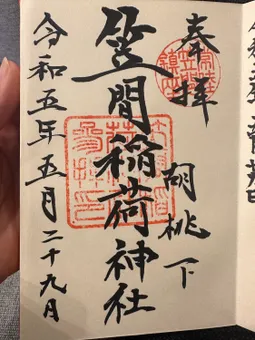 奉拝
胡桃下
笠間稲荷神社
令和五年五月二十九日